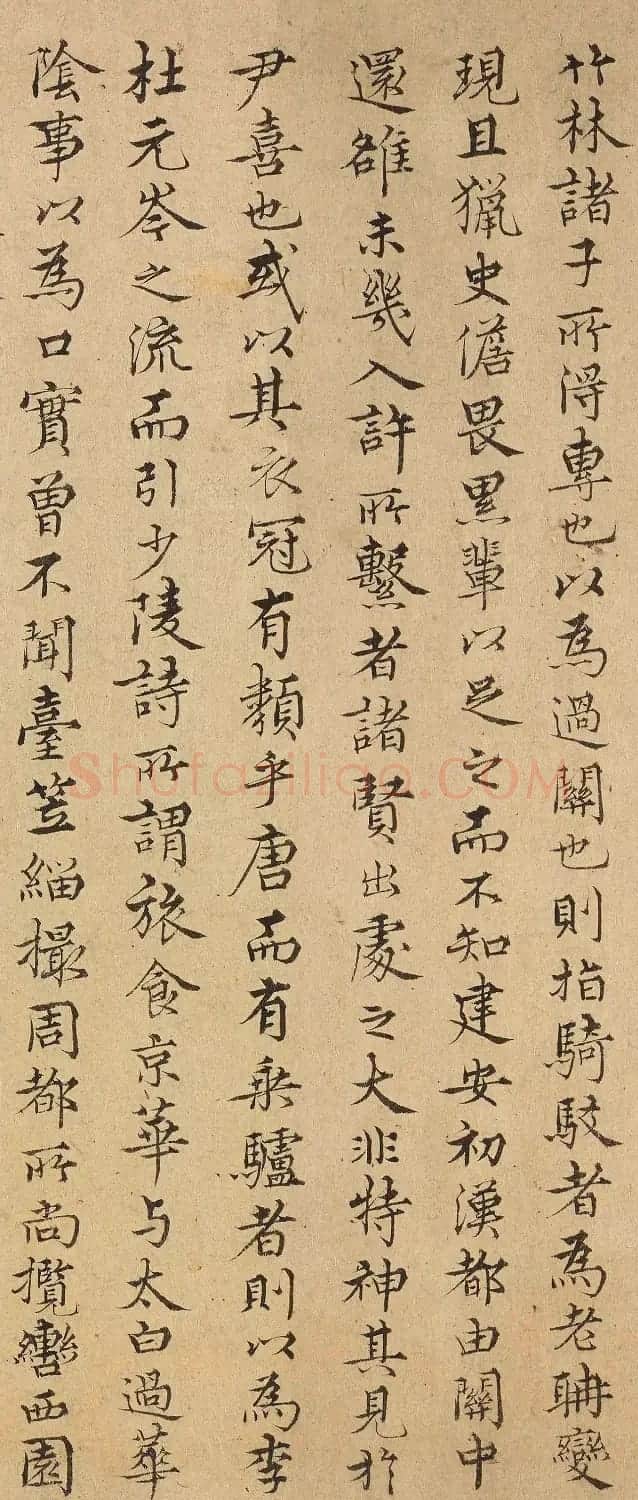 竹林諸子所得專也以為過關也則指騎駁者為老聃變
現且獵史儋畏累輩以足之而不知建安初漢都由關中
還雒未幾入許所繫者諸賢出處之大非特神其見於
尹喜也或以其衣冠有類乎唐而有乘驢者則以為李
杜元岑之流而引少陵詩所謂旅食京華与太白過華
陰事以為口實曾不聞臺笠緇撮周都所尚攬轡西園
Shufaziliao.COM